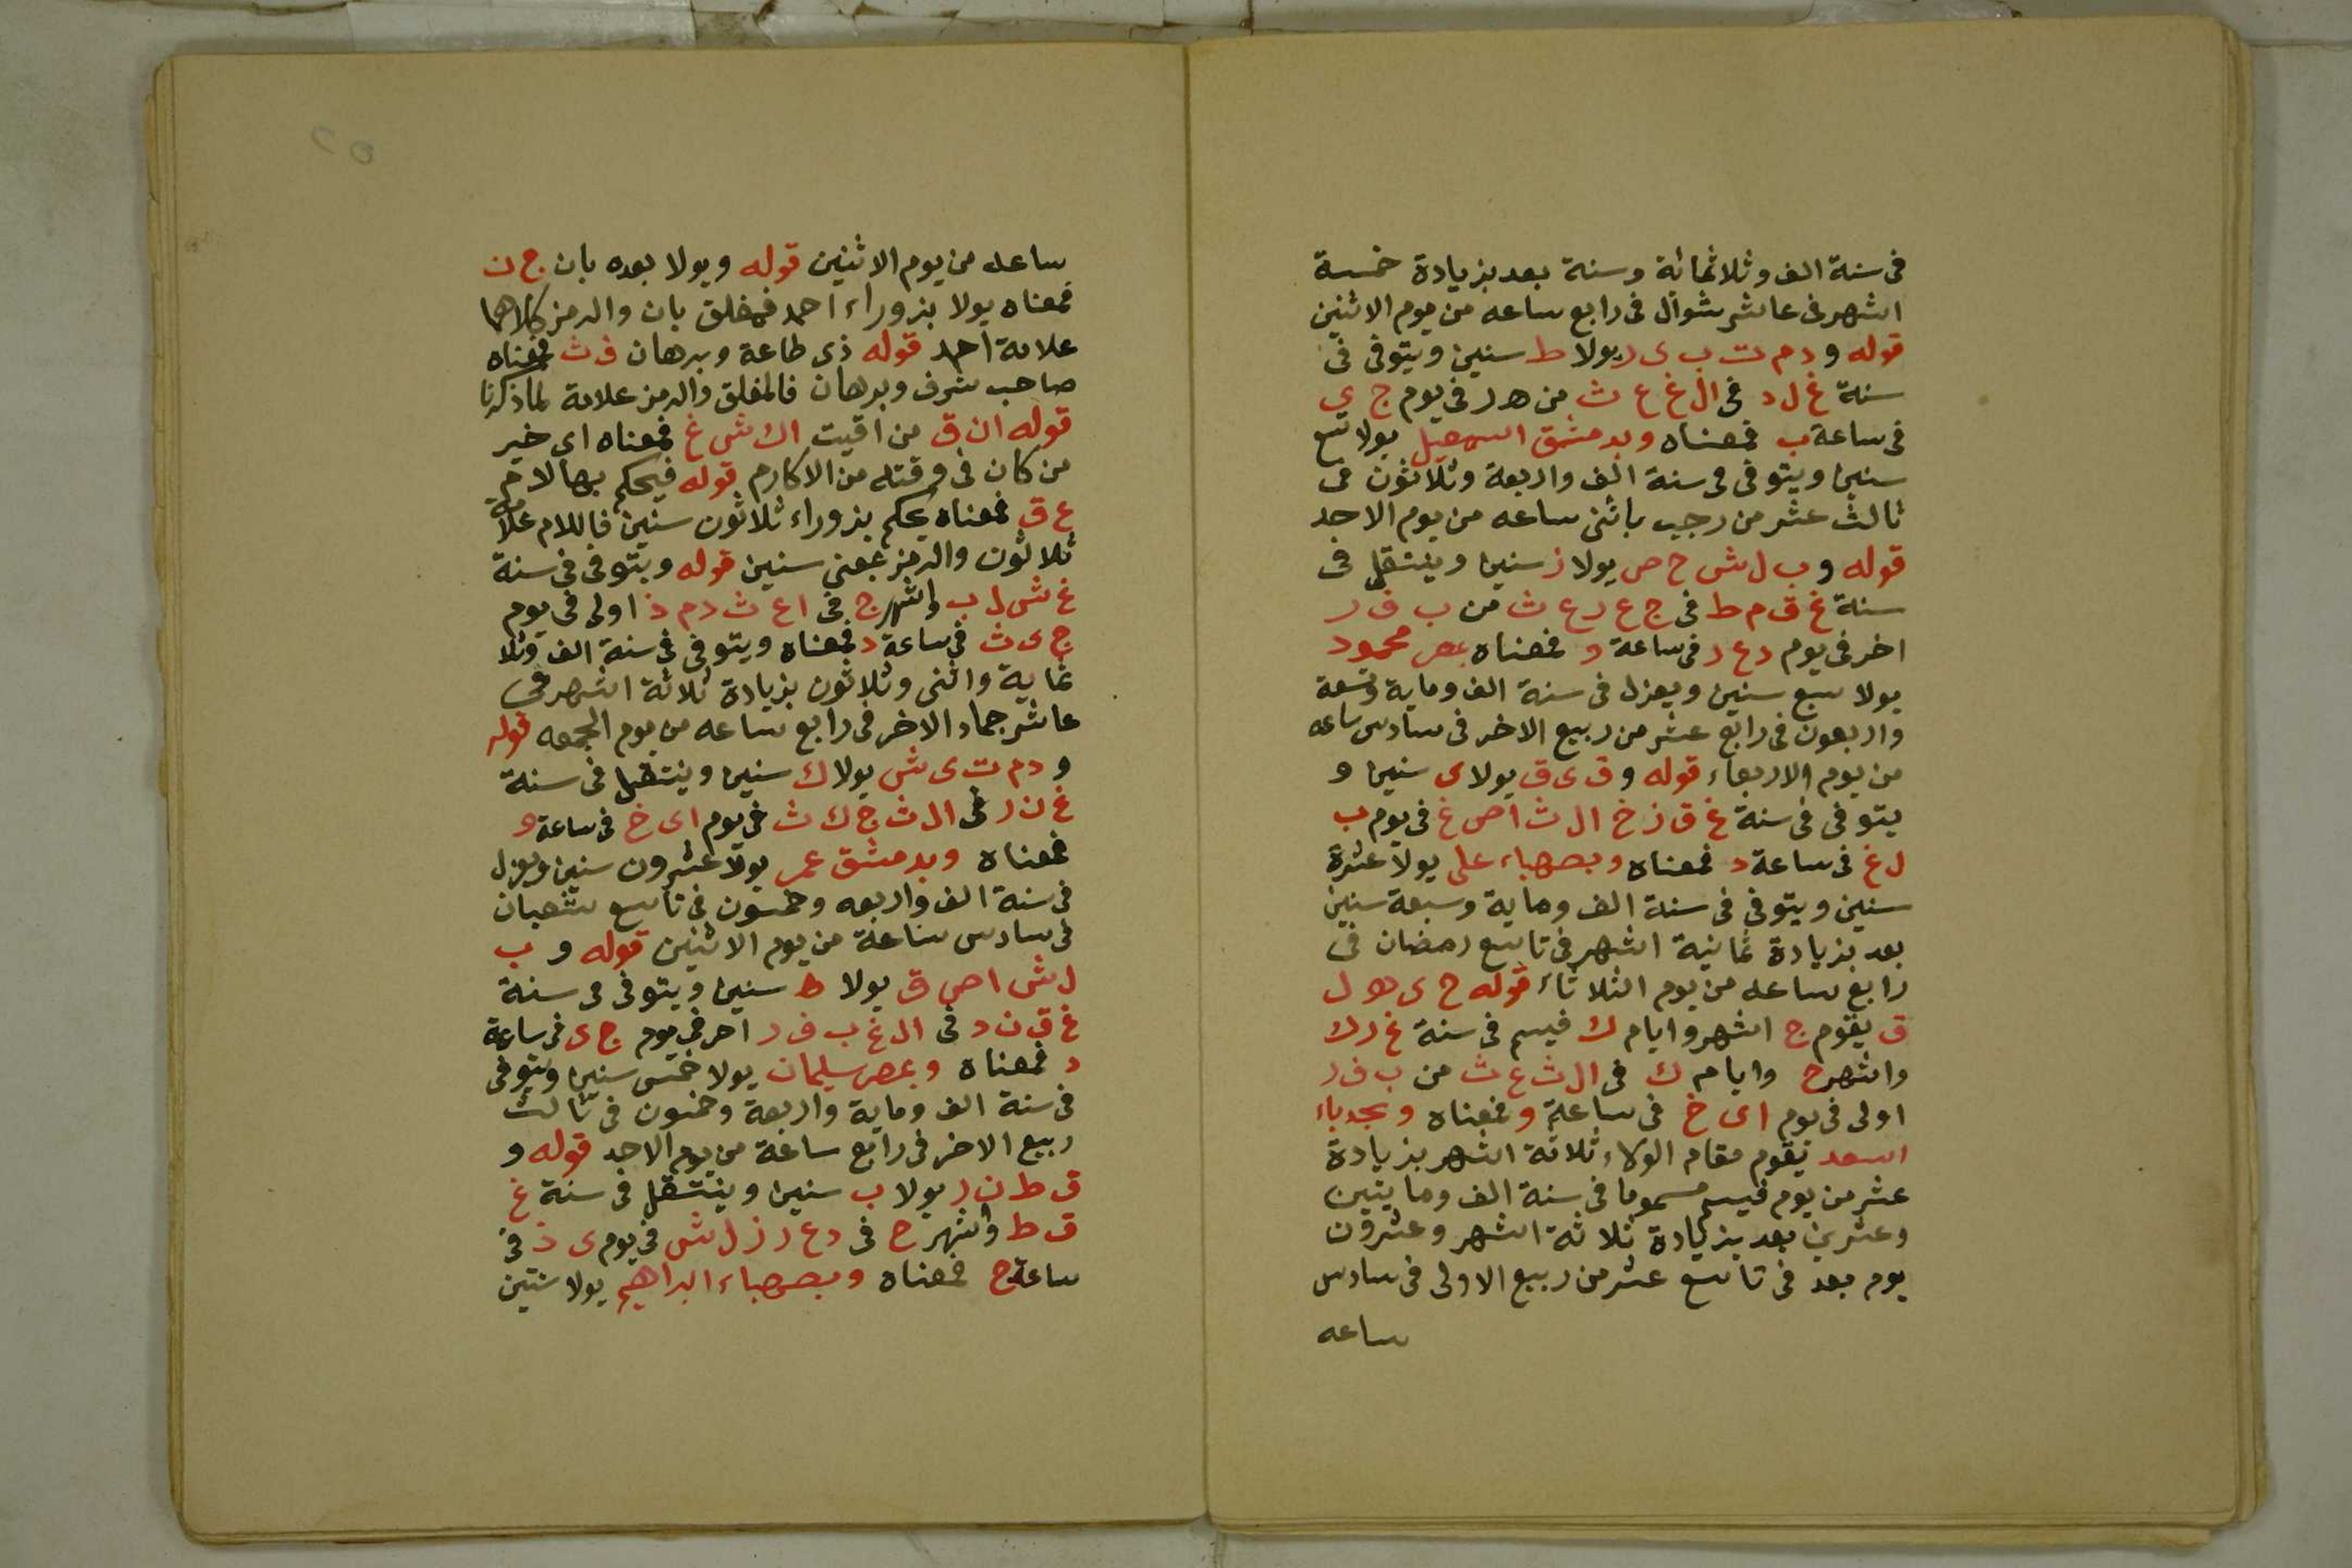 فى سنة الف وثلاثمائة وسنة بعد بزيادة خمسة
اشهر فى عاشر شوال فى رابع ساعه من يوم الاثنين
قوله و د م ت ب ى ر يولا ط سنين ويتوفى فى
سنة غ ل د فى ال غ ع ث من ه ر فى يوم ج ى
فى ساعة ب فمعناه وبدمشق اسمعيل يولا تسع
سنين ويتوفى فى سنة الف واربعة وثلاثون فى
ثالث عشر من رجب باثنى ساعه من يوم الاحد
قوله و ب ل ش ح ص يولا ز سنين وينتقل فى
سنة غ ق م ط فى ج ع ر ع ث من ب ف ر
اخر فى يوم د ع ر فى ساعة و فمعناه بمصر محمود
يولا سبع سنين ويعزل فى سنة الف وماية وتسعة
واربعون فى رابع عشر من ربيع الاخر فى سادس ساعه
من يوم الاربعاء قوله و ق ى ق يولا ى سنين و
يتوفى فى سنة غ ق ز خ ال ث ا ص غ فى يوم ب
ل غ فى ساعة د فمعناه وبصهباء على يولا عشرة
سنين ويتوفى فى سنة الف وماية وسبعة سنين
بعد بزيادة ثمانية اشهر فى تاسع رمضان فى
رابع ساعه من يوم الثلاثاء قوله ح ى ه ل
ق يقوم ج اشهر وايام ك فيسم فى سنة غ ر ك
واشهر ج وايام ك فى ال ث ع ث من ب ف ر
اولى فى يوم ا ى خ فى ساعة و فمعناه وبجدباء
اسعد يقوم مقام الولاء ثلاثة اشهر بزيادة
عشر من يوم فيسم مسموما فى سنة الف وما يتين
وعشرين بعد بزيادة ثلاثة اشهر وعشرون
يوم بعد فى تاسع عشر من ربيع الاولى فى سادس
ساعه
ساعه من يوم الاثنين قوله ويولا بعده بان ج ن
فمعناه يولا بزوراء احمد فمغلق بان والرمز كلاهما
علامة احمد قوله ذى طاعة وبرهان ف ث فمعناه
صاحب شرف وبرهان فالمغلق والرمز علامة لماذكرنا
قوله ان ق من اقيت اك ش غ فمعناه اى خير
من كان فى وقته من الاكارم قوله فيحكم بها لام
ع ق فمعناه يحكم بزوراء ثلاثون سنين فاللام علامة
ثلاثون والرمز بمعنى سنين قوله ويتوفى فى سنة
غ ش ل ب واشهر ج فى ا ع ث د م ذ اولى فى يوم
ج ى ث فى ساعة د فمعناه ويتوفى فى سنة الف وثلا
ثماية واثنى وثلاثون بزيادة ثلاثة اشهر فى
عاشر جماد الاخر فى رابع ساعه من يوم الجمعه قوله
و د م ت ى ش يولا ك سنين وينتقل فى سنة
غ ن ر فى ال ث ج ك ث فى يوم ا ى خ فى ساعة و
فمعناه وبدمشق عمر يولا عشرون سنين ويعزل
فى سنة الف واربعه وخمسون فى تاسع شعبان
فى سادس ساعة من يوم الاثنين قوله و ب
ل ش ا ص ق يولا ط سنين ويتوفى فى سنة
غ ق ن د فى ال غ ب ف ر اخر فى يوم ج ى فى ساعة
د فمعناه وبمصر سليمان يولا خمس سنين ويتوفى
فى سنة الف وماية واربعة وخمسون فى ثالث
ربيع الاخر فى رابع ساعة من يوم الاحد قوله و
ق ط ن ر يولا ب سنين وينتقل فى سنة غ
ق ط واشهر ح فى د ع ر ز ل ش فى يوم ى ذ فى
ساعة ح فمعناه وبصهباء ابراهيم يولا سنتين